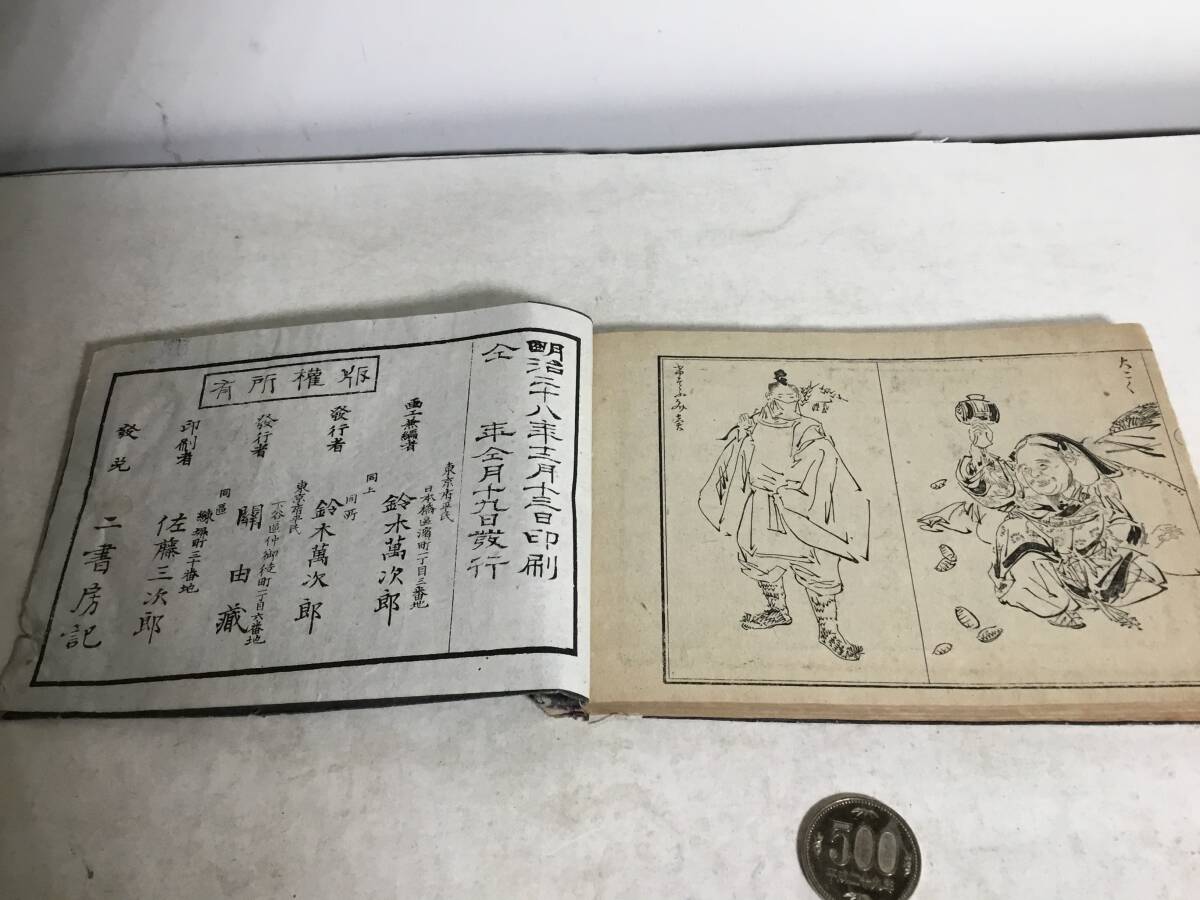 大こく
明治二十八年十二月十三日印刷
仝 年仝月十九日發行
版權所有
画工兼編者
東京市平民
日本橋區濱町一丁目三番地
鈴木萬次郎
同上
發行者
同所
鈴木萬次郎
發行者
東京市平民
下谷區仲御徒町一丁目六番地
關由藏
印刷者
同區
練塀町三十番地
佐藤三次郎
發兌
二書房記
500